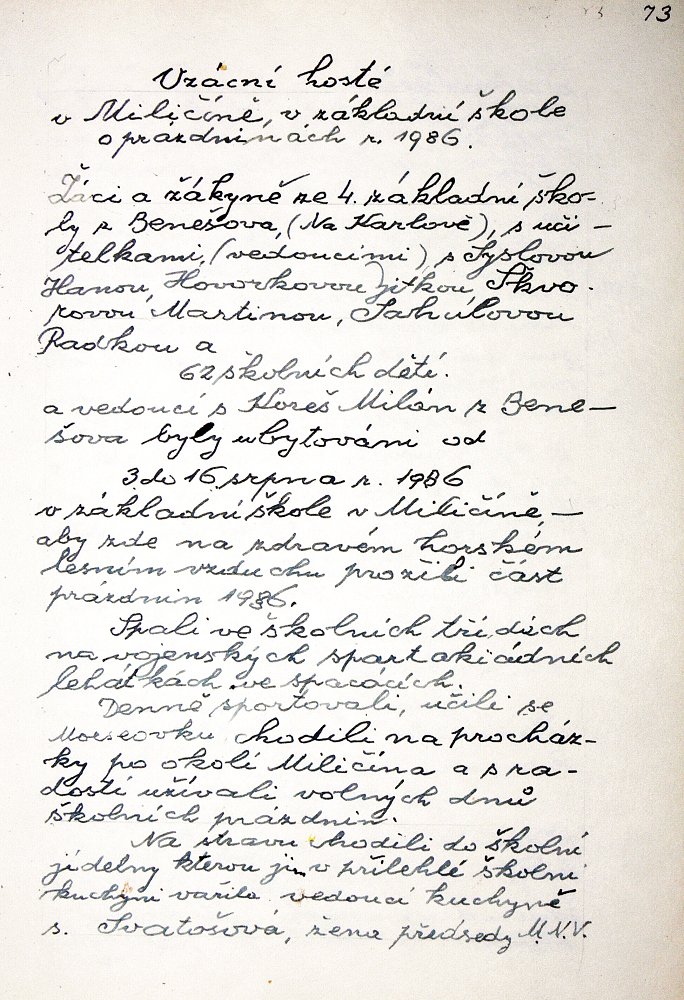 73
Vzácní hosté
v Miličíně, v základní škole
o prázdninách r. 1986.
Žáci a žákyně ze 4. základní ško-
ly z Benešova, (Na Karlově), s uči-
telkami, (vedoucími) s Syslovou
Hanou, Hovorkovou Jitkou, Škvo-
rovou Martinou, Sahúlovou
Radkou a
62 školních dětí.
a vedoucí s Koreš Milán z Bene-
šova byly ubytováni od
3. do 16. srpna r. 1986
v základní škole v Miličíně, -
aby zde na zdravém horském
lesním vzduchu prožili část
prázdnin 1986.
Spali ve školních třídách
na vojenských spartakiádních
lehátkách ve spacácích.
Denně sportovali, učili se
Morseovku chodili na procház-
ky po okolí Miličína a s ra-
dostí užívali volných dnů
školních prázdnin.
Na stravu chodili do školní
jídelny kterou jim v přilehlé školní
kuchyni vařila vedoucí kuchyně
s. Svatošová, žena předsedy M.N.V.